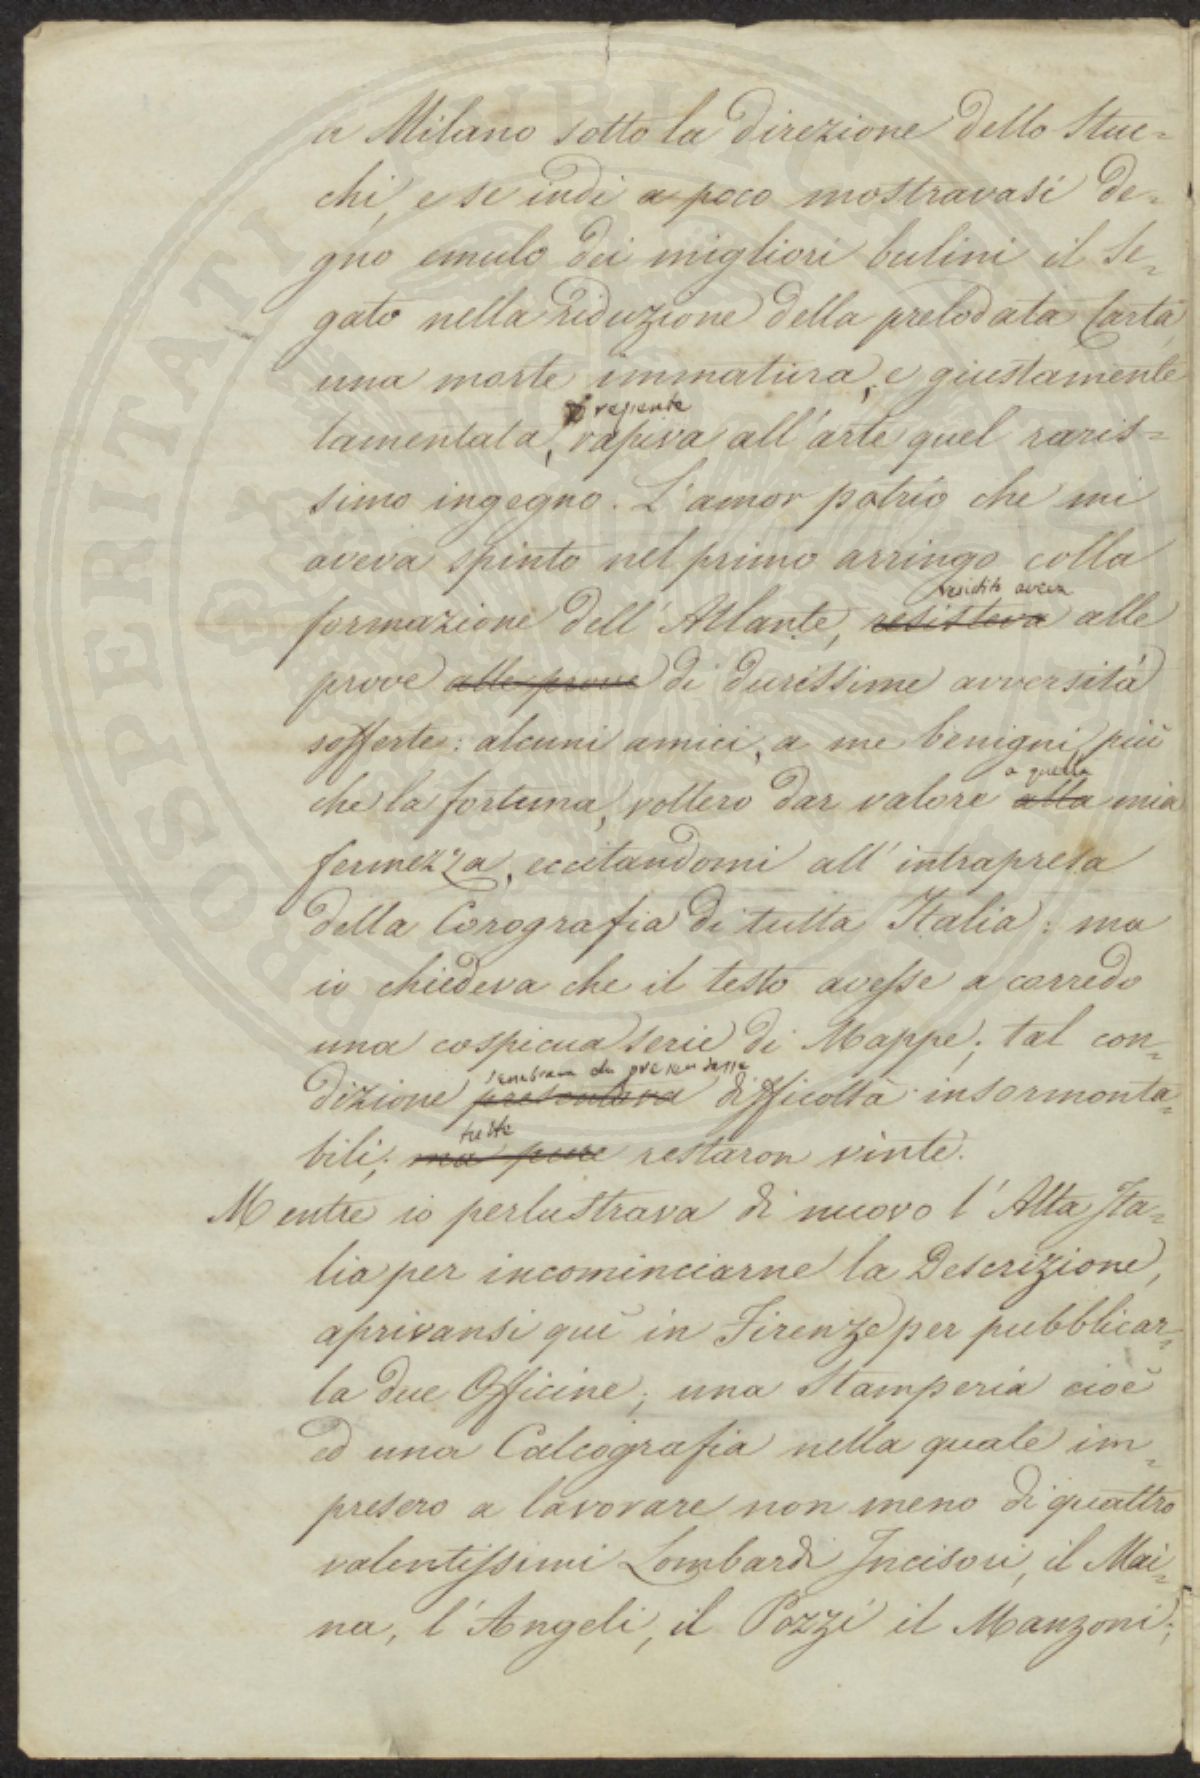 a Milano sotto la direzione dello Stuc-
chi, e se indi a poco mostravasi de-
gno emulo dei migliori bulini il Se-
gato nella riduzione della prelodata Carta,
una morte immatura, e giustamente
repente
lamentata, rapiva all'arte quel raris-
simo ingegno. L'amor patrio che mi
aveva spinto nel primo arringo colla
resistito aveva
formazione dell'Atlante, resisteva alle
prove alle prove di durissime avversità
sofferte: alcuni amici, a me benigni più
a quella
che la fortuna, vollero dar valore alla mia
fermezza, eccitandomi all'intrapresa
della Corografia di tutta Italia: ma
io chiedeva che il testo avesse a corredo
una cospicua serie di Mappe; tal con-
sembrava che presentasse
dizione presentava difficoltà insormonta-
tutte
bili; ma pure restaron vinte.
Mentre io perlustrava di nuovo l'Alta Ita-
lia per incominciarne la Descrizione,
aprivansi quì in Firenze per pubblicar-
la due Officine; una Stamperia cioè
ed una Calcografia nella quale im-
presero a lavorare non meno di quattro
valentissimi Lombardi Incisori, il Mai-
na, l'Angeli, il Pozzi il Manzoni;
PROSPERITATI PUBLICAE